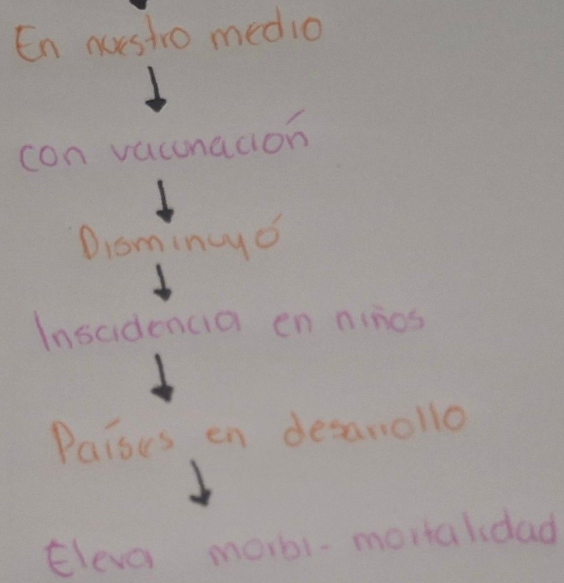 En nuestro medio
con vacunación
Disminuyó
Inscidencia en niños
Países en desarrollo
Eleva morbi-mortalidad